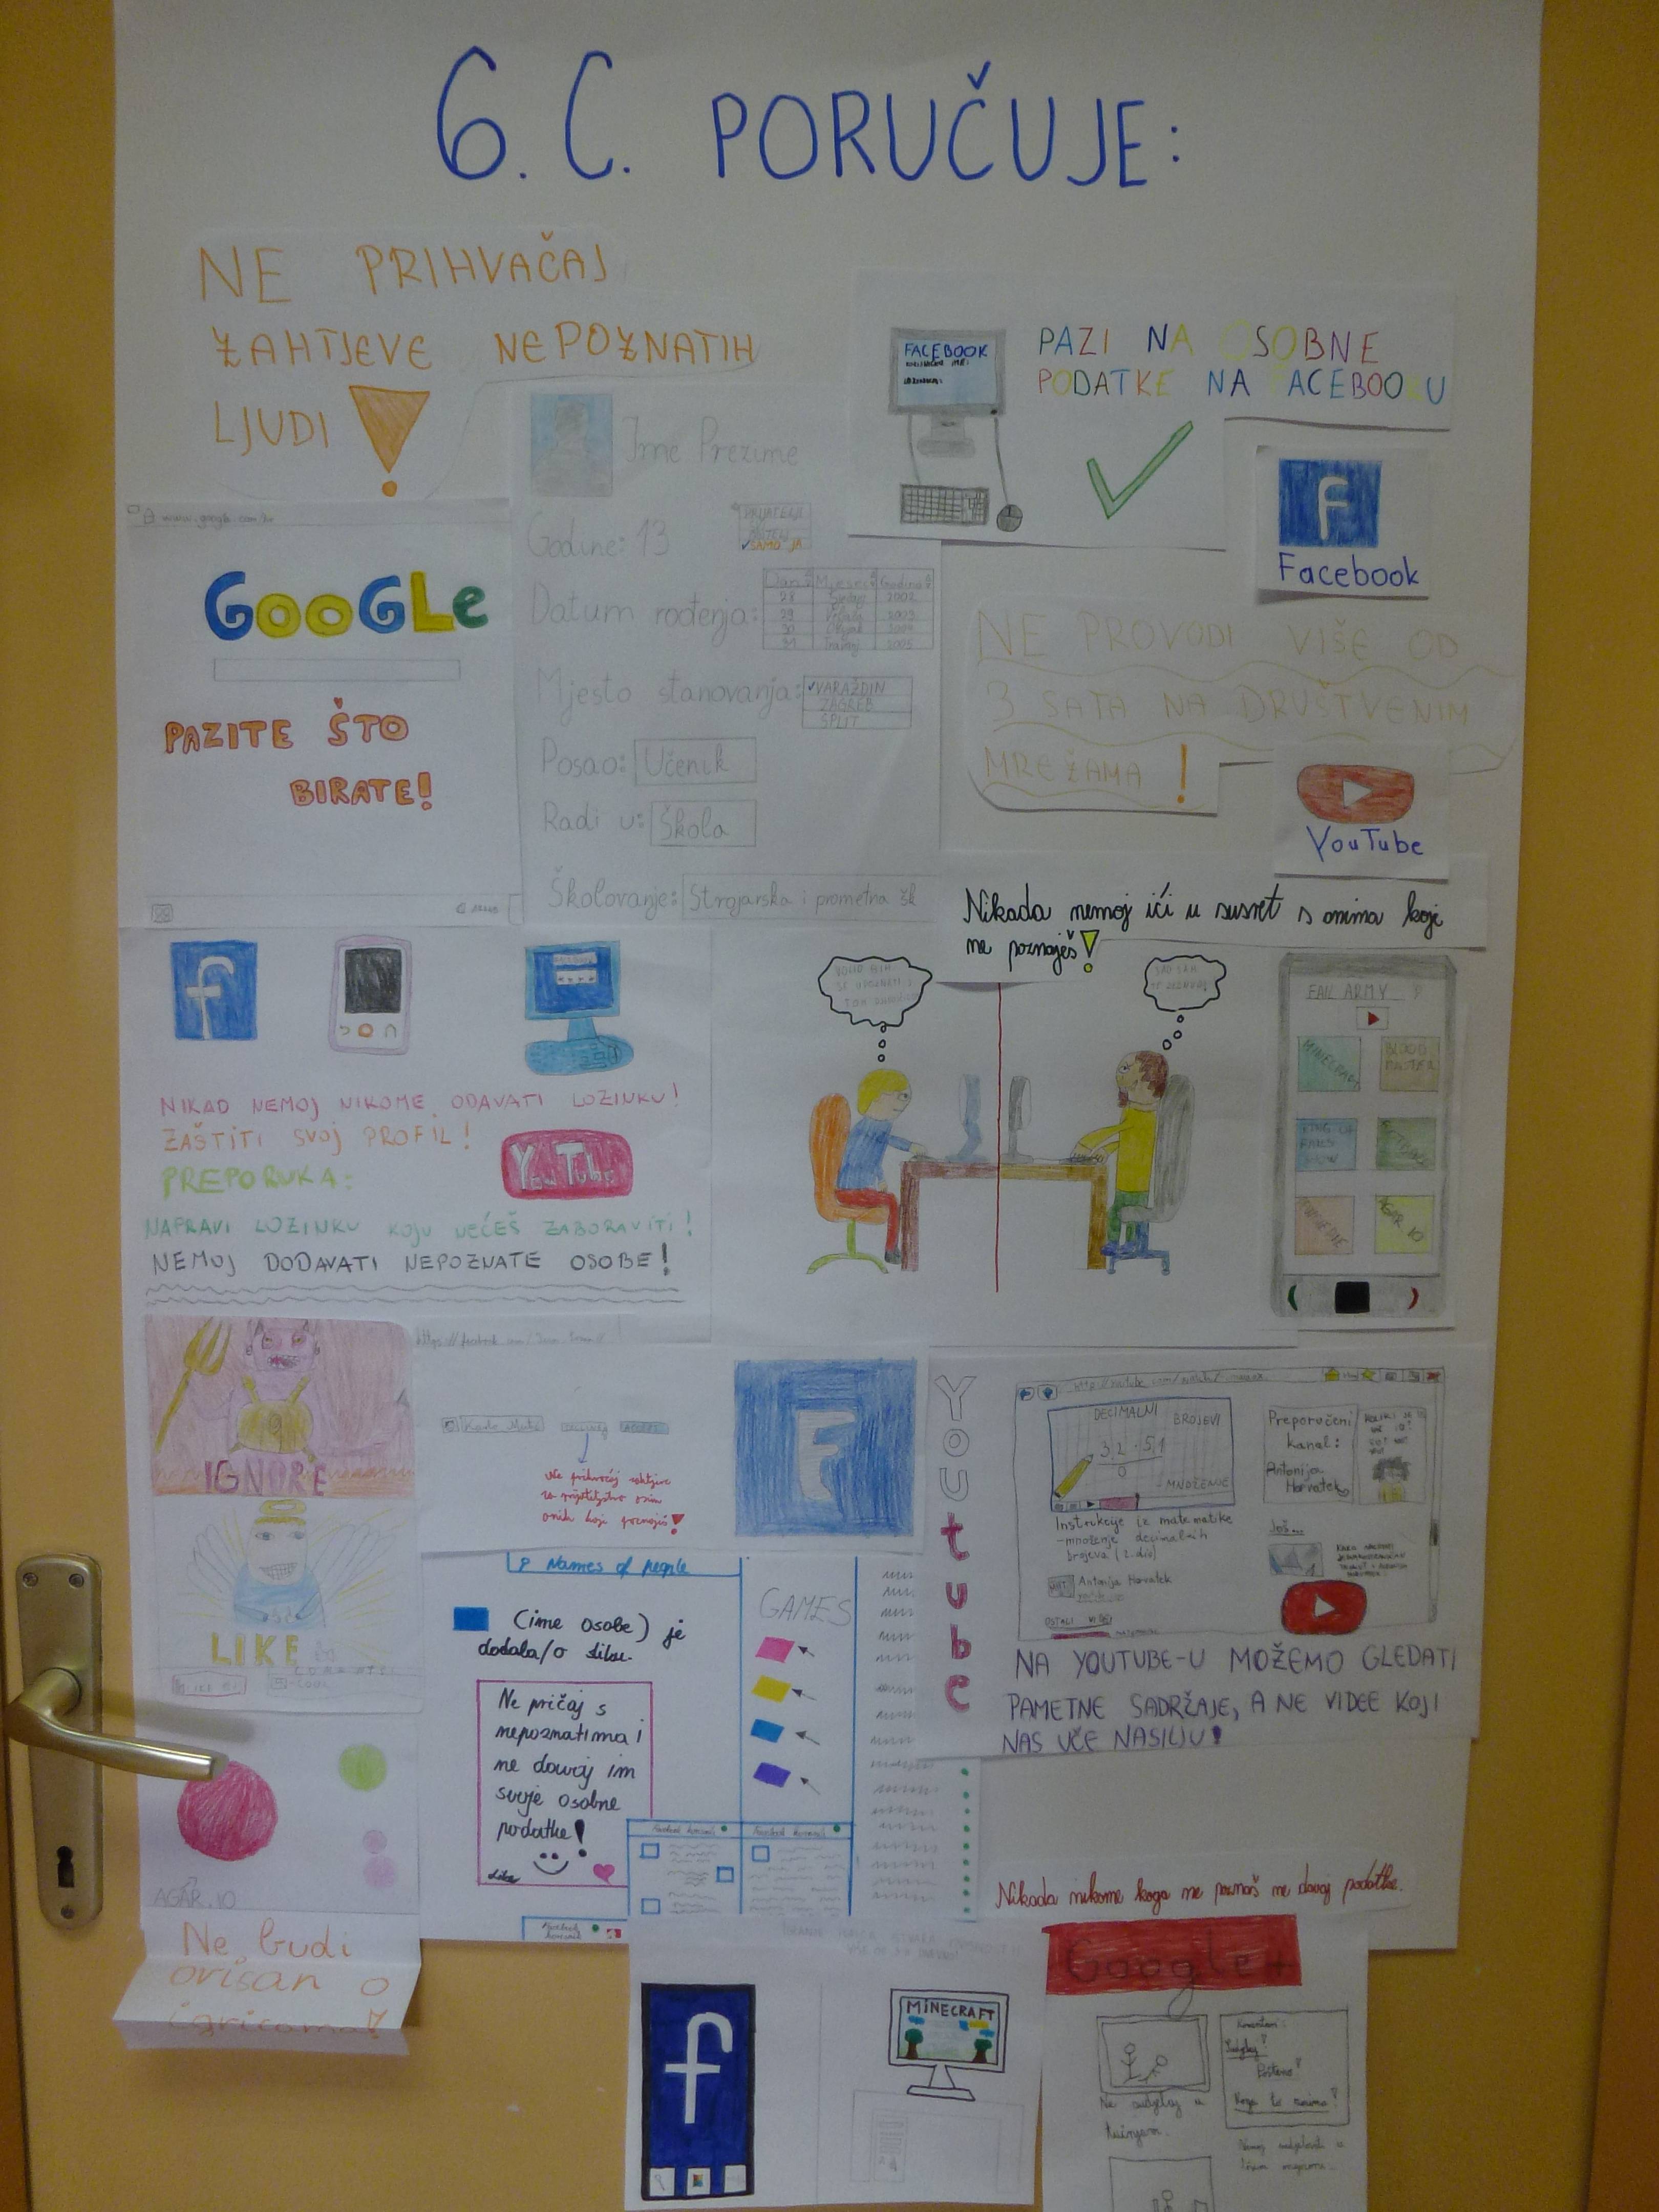 6. C. PORUČUJE:
NE PRIHVAČAJ
ZAHTJEVE NEPOZNATIH
LJUDI !
FACEBOOK
PAZI NA OSOBNE
PODATKE NA FACEBOOKU
Facebook
www.google.com/hr
GOOGLE
PAZITE ŠTO
BIRATE!
Ime Prezime
Godine: 13
PRIJATELJI
✓SAMO JA
Datum rođenja:
Dan Mjesec Godina
28 2002
29 2003
30 2004
31 2005
Mjesto stanovanja:
✓VARAŽDIN
ZAGREB
SPLIT
Posao: Učenik
Radi u: Škola
Školovanje: Strojarska i prometna šk
NE PROVODI VIŠE OD
3 SATA NA DRUŠTVENIM
MREŽAMA !
YouTube
Nikada nemoj ići u susret s onima koje
ne poznaješ!
f
FACEBOOK
NIKAD NEMOJ NIKOME ODAVATI LOZINKU!
ZAŠTITI SVOJ PROFIL!
YouTube
PREPORUKA:
NAPRAVI LOZINKU KOJU NEĆEŠ ZABORAVITI!
NEMOJ DODAVATI NEPOZNATE OSOBE!
FAIL ARMY
MINECRAFT
AGAR IO
IGNORE
LIKE
F
Ne prihvaćaj zahtjeve
za prijateljstvo osim
onih koji poznaješ!
YOUtube
DECIMALNI BROJEVI
3,2 · 5,1
MNOŽENJE
Preporučeni
kanal:
Antonija
Horvatek
Instrukcije iz matematike
-množenje decimalnih
brojeva (2. dio)
Antonija Horvatek
Još...
OSTALI
NA YOUTUBE-U MOŽEMO GLEDATI
PAMETNE SADRŽAJE, A NE VIDEE KOJI
NAS UČE NASILJU!
Names of people
(ime osobe) je
dodala/o sliku.
GAMES
Ne pričaj s
nepoznatima i
ne davaj im
svoje osobne
podatke!
AGAR.IO
Ne budi
ovisan o
igricama!
Nikada nikome koga ne poznaš ne davaj podatke.
Google+
f
MINECRAFT
Komentari:
Ne sudjeluj u